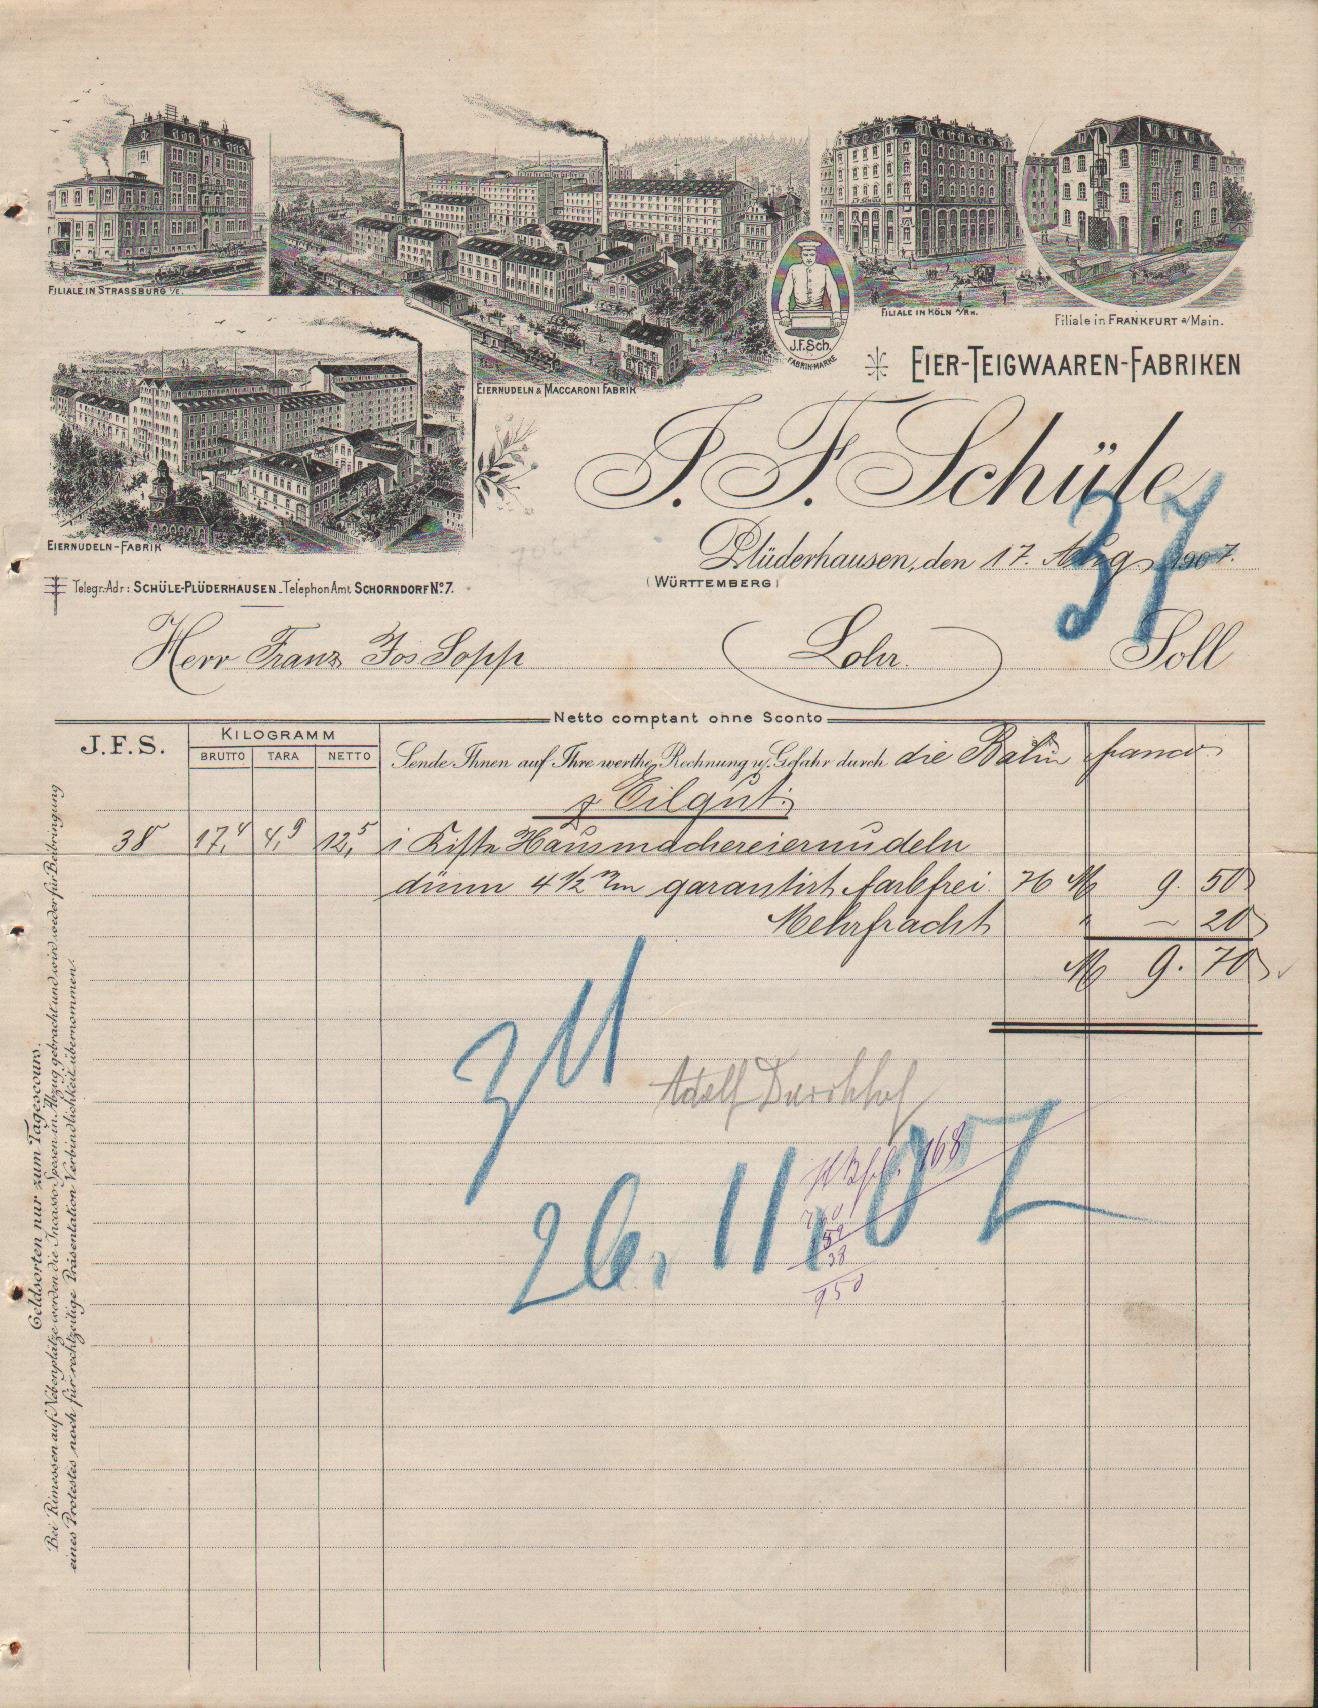 FILIALE IN STRASSBURG i/E.
EIERNUDELN & MACCARONI FABRIK
J.F.Sch.
FABRIK-MARKE
FILIALE IN KÖLN a/RH.
Filiale in FRANKFURT a/Main.
EIERNUDELN-FABRIK
EIER-TEIGWAAREN-FABRIKEN
J. F. Schüle
37
Plüderhausen, den 17. Aug 1907.
(WÜRTTEMBERG)
Telegr.-Adr: SCHÜLE-PLÜDERHAUSEN. Telephon Amt SCHORNDORF No. 7.
Herr Franz Jos Sopp Lohr. Soll
Netto comptant ohne Sconto
J.F.S. KILOGRAMM
BRUTTO TARA NETTO
Sende Ihnen auf Ihre werthe Rechnung u. Gefahr durch die Bahn franco
Eilgut.
38 17,4 4,9 12,5 1 Kiste Hausmachereiernudeln
dünn 4 1/2 m/m garantirt farbfrei 76 M 9. 50
Mehrfracht " – 20
M 9. 70
Adolf
168
26. 11. 07
760
38
950
Geldsorten nur zum Tagescours.
Bei Rimessen auf Nebenplätze werden die Incasso Spesen in Abzug gebracht und wird weder für Beibringung
eines Protestes noch für rechtzeitige Präsentation Verbindlichkeit übernommen.